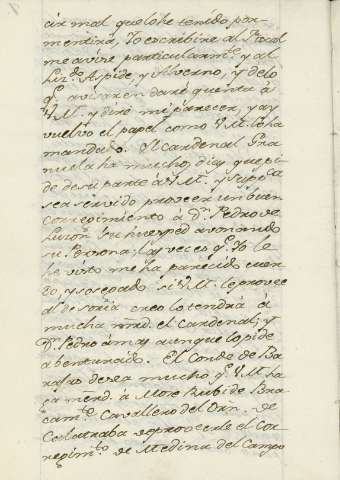 cir mal que lo he tenido por
mentira, Yo escribire al Fiscal
me avise particularm.te y al
Liz.do Aspide, y Alverno, y de lo
q.e avisaren daré quenta á
V.M. y diré mi parecer, y ay
vuelvo el papel como V.M. lo ha
mandado. El Cardenal Gra
nuela ha mucho, dias que pi
de de su parte á V.M. y supp.ca
sea servido proveer un buen
corregimiento á D.n Pedro de
su huesped avonando
su Persona; las veces q.e Yo le
he visto me ha parecido cuer
do, y sosegado si V.M. le provee
al de Soria creo lo tendrá á
mucha mrd. el Cardenal; y
D.n Pedro aunque lo pide
abenturado. El Conde de Ba
rajas desea mucho q.e V.M. ha
ga merd. á Mosen Rubi de Bra
cam.te Cavallero del Orn. de
Calatraba de proveerle el Cor
regim.to de Medina del Campo